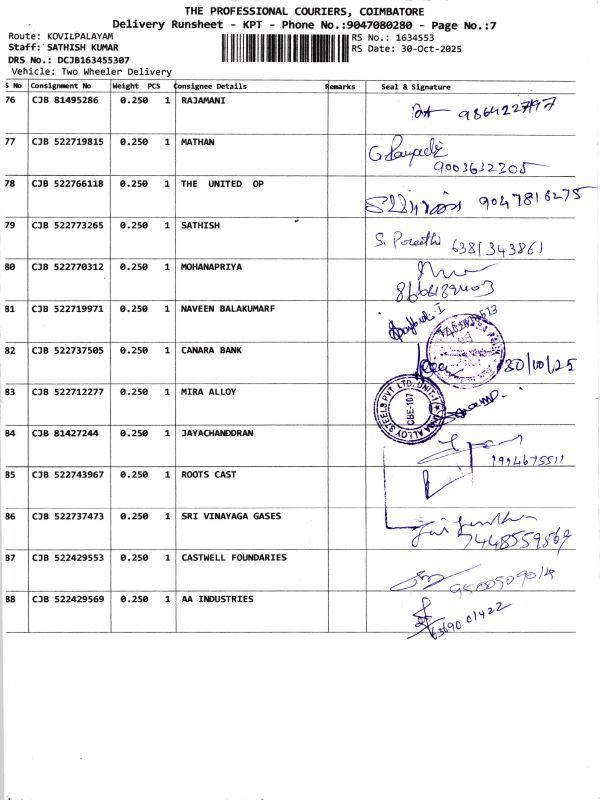 THE PROFESSIONAL COURIERS, COIMBATORE
Delivery Runsheet - KPT - Phone No.:9047080280 - Page No.:7
Route: KOVILPALAYAM RS No.: 1634553
Staff: SATHISH KUMAR RS Date: 30-Oct-2025
DRS No.: DCJB163455307
Vehicle: Two Wheeler Delivery
S No Consignment No Weight PCS Consignee Details Remarks Seal & Signature
76 CJB 81495286 0.250 1 RAJAMANI
77 CJB 522719815 0.250 1 MATHAN 9003632305
78 CJB 522766118 0.250 1 THE UNITED OP 9047816275
79 CJB 522773265 0.250 1 SATHISH S. Preethi 6381343861
80 CJB 522770312 0.250 1 MOHANAPRIYA
81 CJB 522719971 0.250 1 NAVEEN BALAKUMARF
82 CJB 522737505 0.250 1 CANARA BANK 30/10/25
83 CJB 522712277 0.250 1 MIRA ALLOY ALLOY STEELS PVT. LTD. UNIT-1 CBE-107
84 CJB 81427244 0.250 1 JAYACHANDDRAN 9994675511
85 CJB 522743967 0.250 1 ROOTS CAST
86 CJB 522737473 0.250 1 SRI VINAYAGA GASES 7448559869
87 CJB 522429553 0.250 1 CASTWELL FOUNDARIES 9500509019
88 CJB 522429569 0.250 1 AA INDUSTRIES